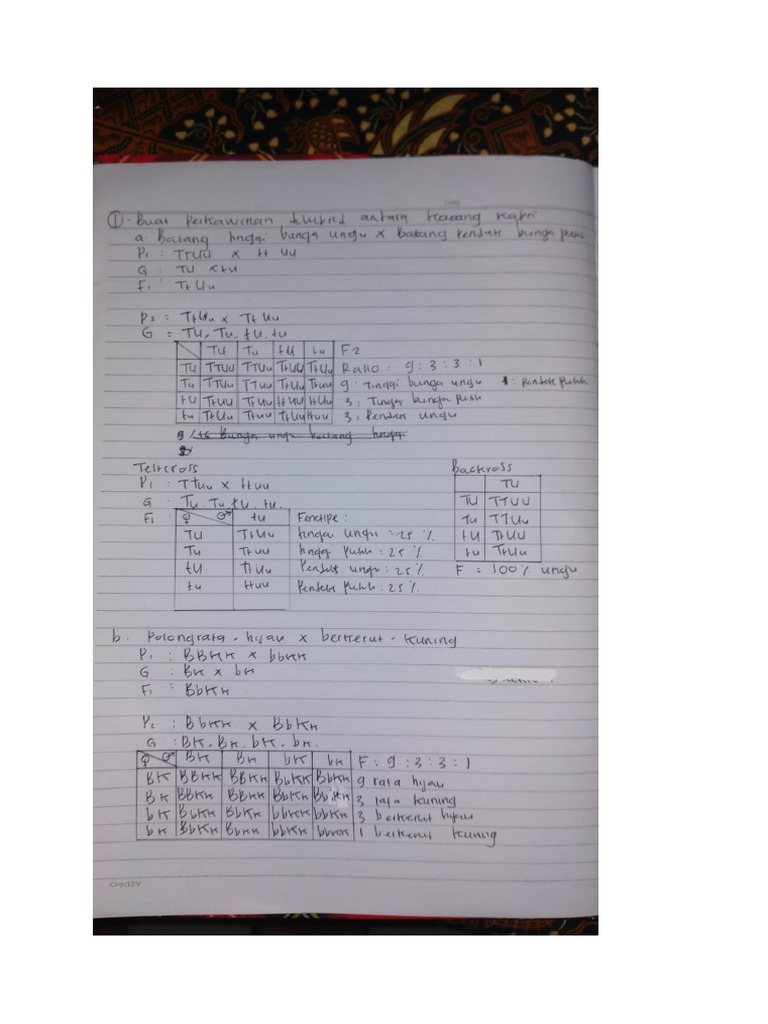 ① Buat Perkawinan dihibrid antara kacang kapri
a. Batang tinggi bunga ungu x Batang Pendek bunga putih
P1 : TTUU x tt uu
G : TU x tu
F1 : TtUu
P2 = TtUu x TtUu
G = TU, Tu, tU, tu
TU Tu tU tu F2
TU TTUU TTUu TtUU TtUu Ratio : 9 : 3 : 3 : 1
Tu TTUu TTuu TtUu Ttuu 9 : Tinggi bunga ungu 1 : Pendek Putih
tU TtUU TtUu ttUU ttUu 3 : Tinggi bunga putih
tu TtUu Ttuu TtUu ttuu 3 : Pendek ungu
Testcross
P1 : TtUu x ttuu
G : TU, Tu, tU, tu.
F1 : ♀ ♂ tu Fenotipe :
TU TtUu tinggi ungu = 25 %
Tu Ttuu tinggi putih : 25 %
tU TtUu Pendek ungu : 25 %
tu ttuu Pendek putih : 25 %.
Backross
TU
TU TTUU
Tu TTUu
tU TtUU
tu TtUu
F = 100% ungu
b. Polong rata - hijau x berkerut - kuning
P1 : BBKK x bbkk
G : BK x bk
F1 : BbKk
P2 : BbKk x BbKk
G : BK, Bk, bK, bk.
♀ ♂ BK Bk bK bk F : 9 : 3 : 3 : 1
BK BBKK BBKk BbKK BbKk 9 rata hijau
Bk BBKk BBKk BbKk BbKk 3 rata kuning
bK BbKK BbKk bbKK bbKk 3 berkerut hijau
bk BbKk Bbkk bbKk bbkk 1 berkerut kuning
OKEY